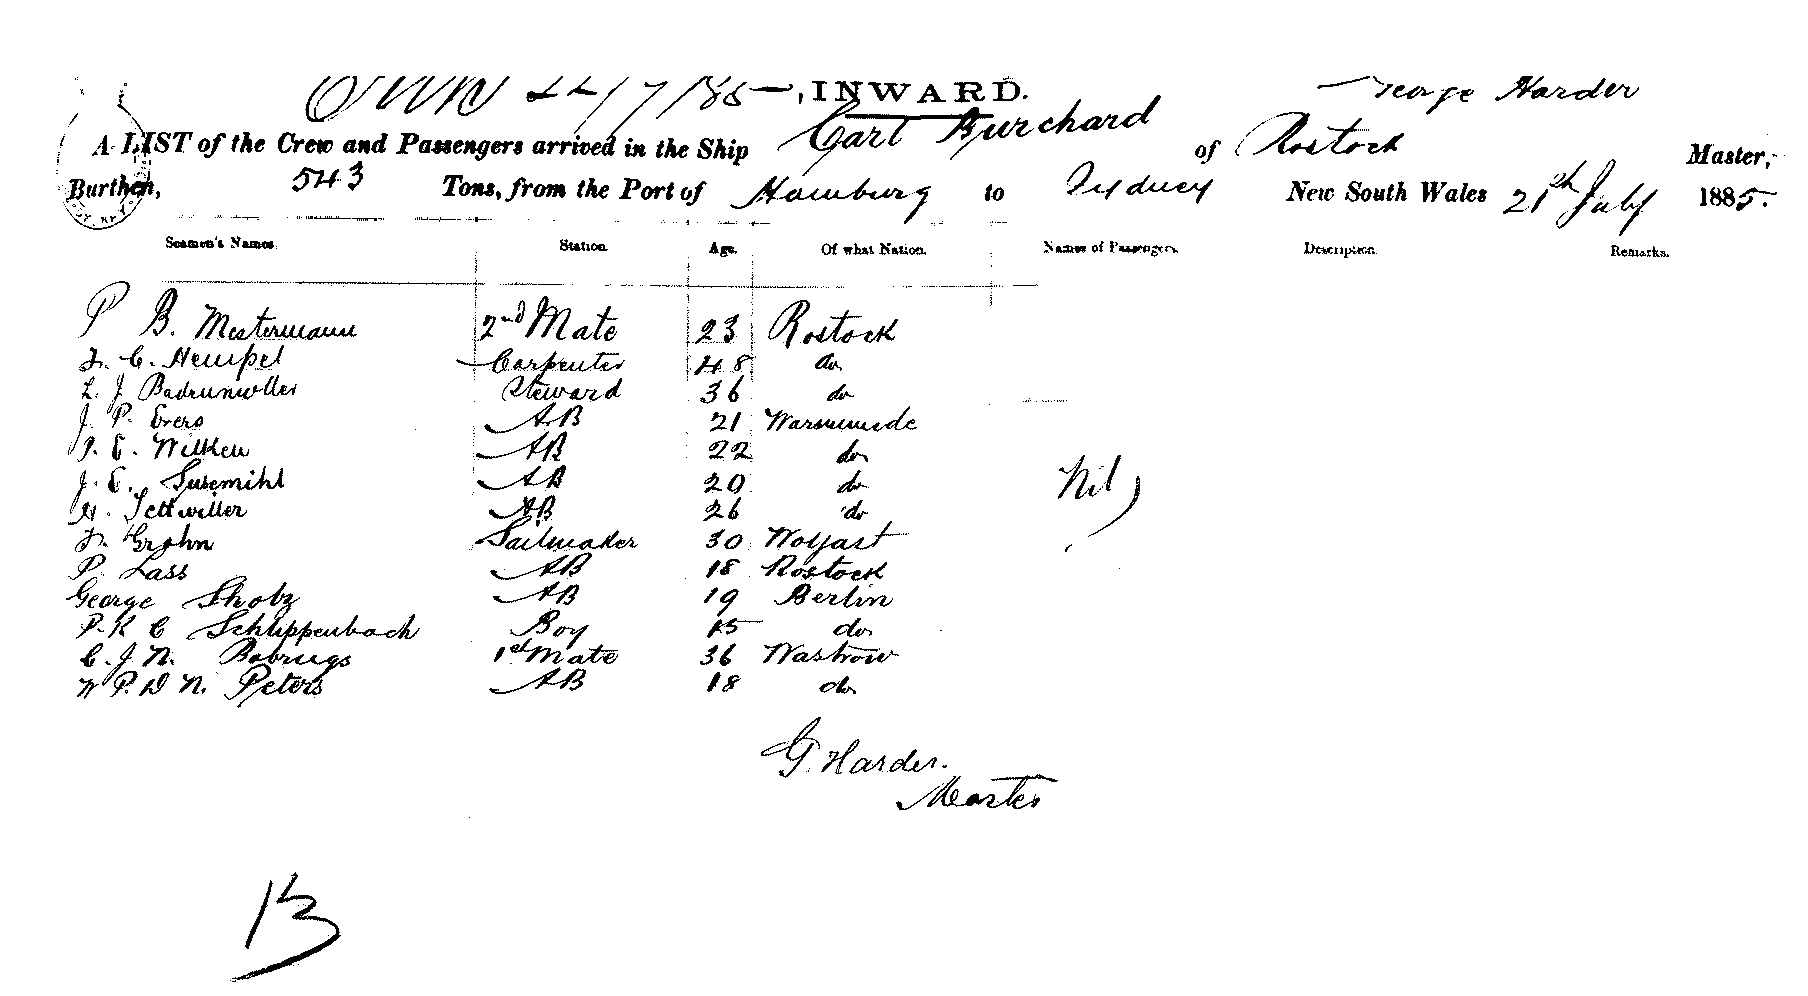 22/7/85 INWARD. George Harder
A LIST of the Crew and Passengers arrived in the Ship Carl Burchard of Rostock Master,
Burthen, 543 Tons, from the Port of Hamburg to Sydney New South Wales 21st July 1885.
Seamen's Names. Station. Age. Of what Nation. Names of Passengers. Description. Remarks.
P B. Mestermann 2nd Mate 23 Rostock
Fr. C. Hempel Carpenter 48 do
L. J. 36 Steward do
J. P. Evers AB 21 Warnemünde
E. Wilken AB 22 do
J. E. Susemihl AB 20 do Nil
H. AB 26 do
Fr. Grohn Sailmaker 30 Wolgast
P. Lass AB 18 Rostock
George Sholz AB 19 Berlin
P. K C Schlippenbach Boy 15 do
C. J. N. 1st Mate 36 Wastrow
W P. D N. Peters AB 18 do
G. Harder.
Master
13